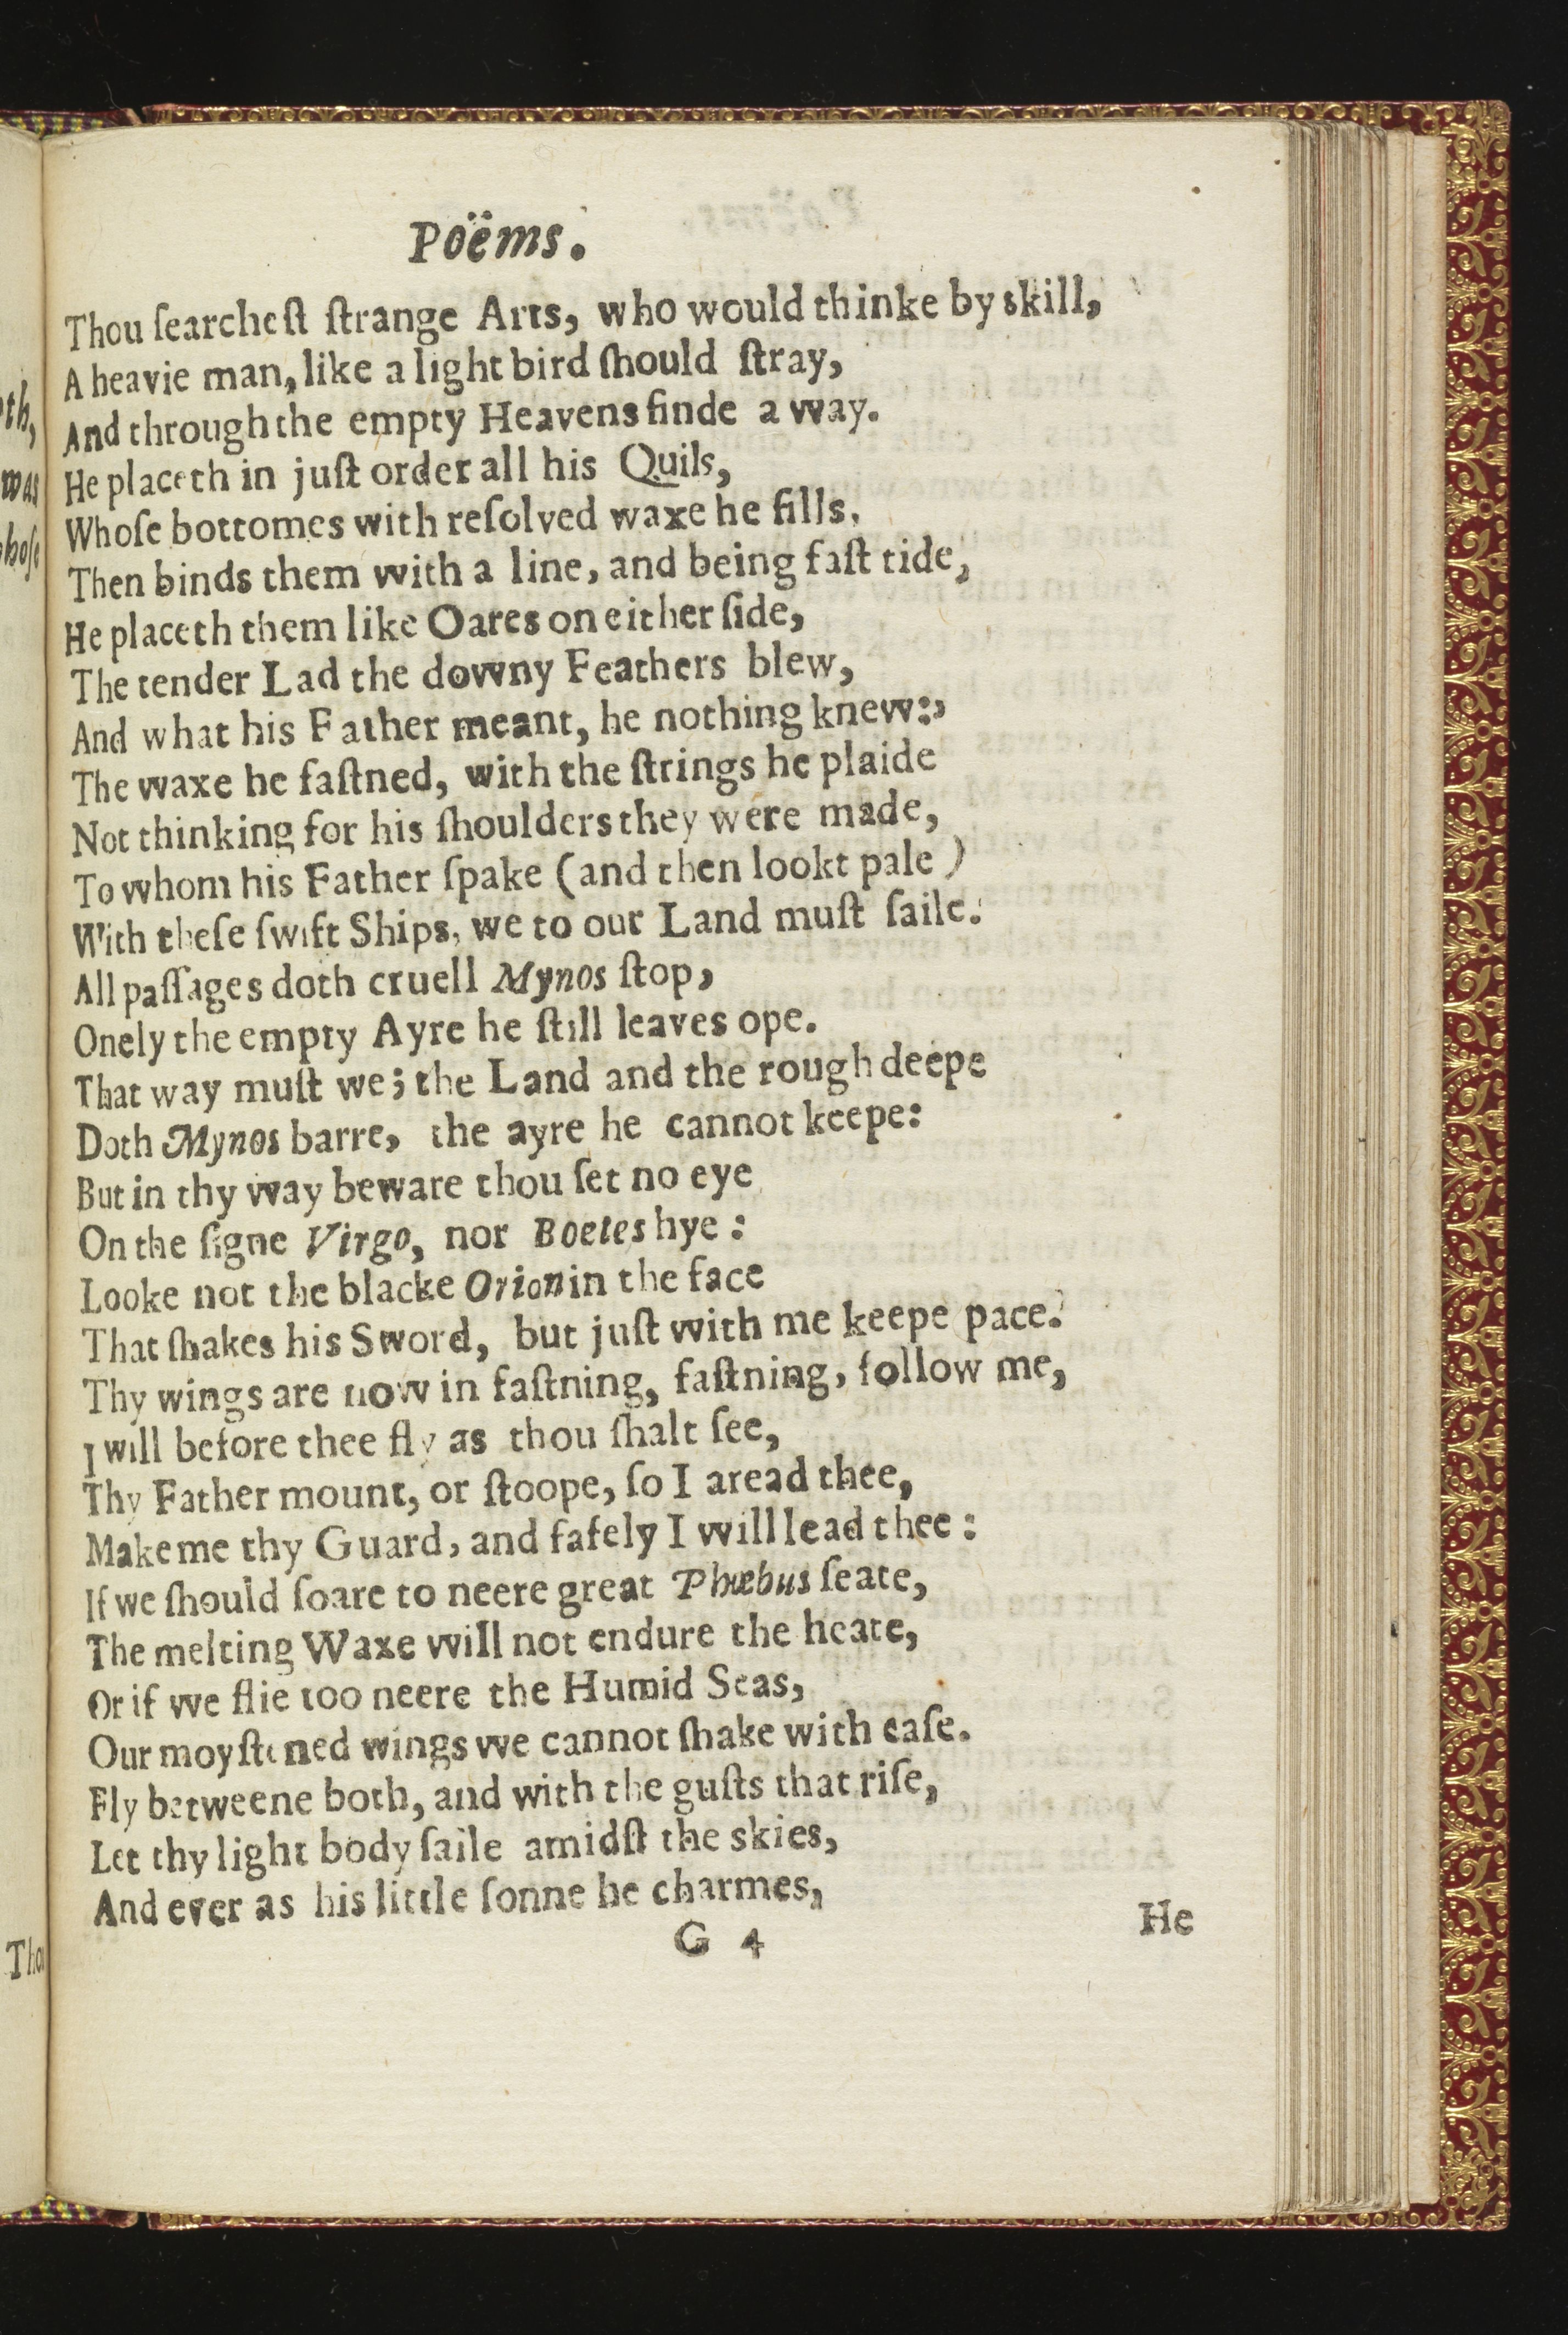 Poëms.
Thou ſearcheſt ſtrange Arts, who would thinke by skill,
A heavie man, like a light bird ſhould ſtray,
And through the empty Heavens finde a way.
He placeth in juſt order all his Quils,
Whoſe bottomes with reſolved waxe he fills,
Then binds them with a line, and being faſt tide,
He placeth them like Oares on either ſide,
The tender Lad the downy Feathers blew,
And what his Father meant, he nothing knew:,
The waxe he faſtned, with the ſtrings he plaide
Not thinking for his ſhoulders they were made,
To whom his Father ſpake (and then lookt pale)
With theſe ſwift Ships, we to our Land muſt ſaile.
All paſſages doth cruell Mynos ſtop,
Onely the empty Ayre he ſtill leaves ope.
That way muſt we; the Land and the rough deepe
Doth Mynos barre, the ayre he cannot keepe:
But in thy way beware thou ſet no eye
On the ſigne Virgo, nor Boetes hye:
Looke not the blacke Orion in the face
That ſhakes his Sword, but juſt with me keepe pace.
Thy wings are now in faſtning, faſtning, follow me,
I will before thee fly as thou ſhalt ſee,
Thy Father mount, or ſtoope, ſo I aread thee,
Make me thy Guard, and ſafely I will lead thee:
If we ſhould ſoare to neere great Phœbus ſeate,
The melting Waxe will not endure the heate,
Or if we flie too neere the Humid Seas,
Our moyſtened wings we cannot ſhake with eaſe.
Fly betweene both, and with the guſts that riſe,
Let thy light body ſaile amidſt the skies,
And ever as his little ſonne he charmes,
G 4
He